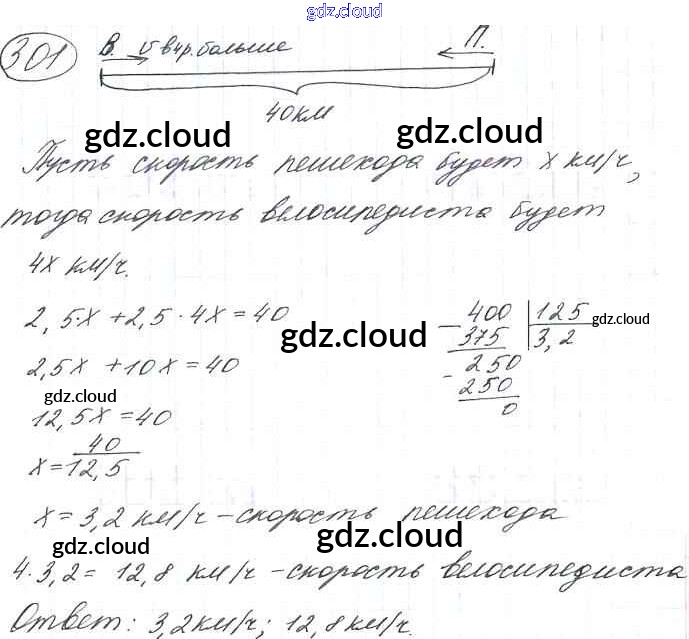 gdz.cloud
301 В. υ в 4р. больше П.
40км
gdz.cloud gdz.cloud
Пусть скорость пешехода будет х км/ч,
тогда скорость велосипедиста будет
4х км/ч.
2,5·х + 2,5 · 4х = 40
gdz.cloud
2,5х + 10х = 40
gdz.cloud
12,5х = 40
х = 40
12,5
400 125
375 3,2
gdz.cloud
250
250
0
х = 3,2 км/ч – скорость пешехода
gdz.cloud gdz.cloud
4·3,2 = 12,8 км/ч – скорость велосипедиста
Ответ: 3,2км/ч; 12,8км/ч.